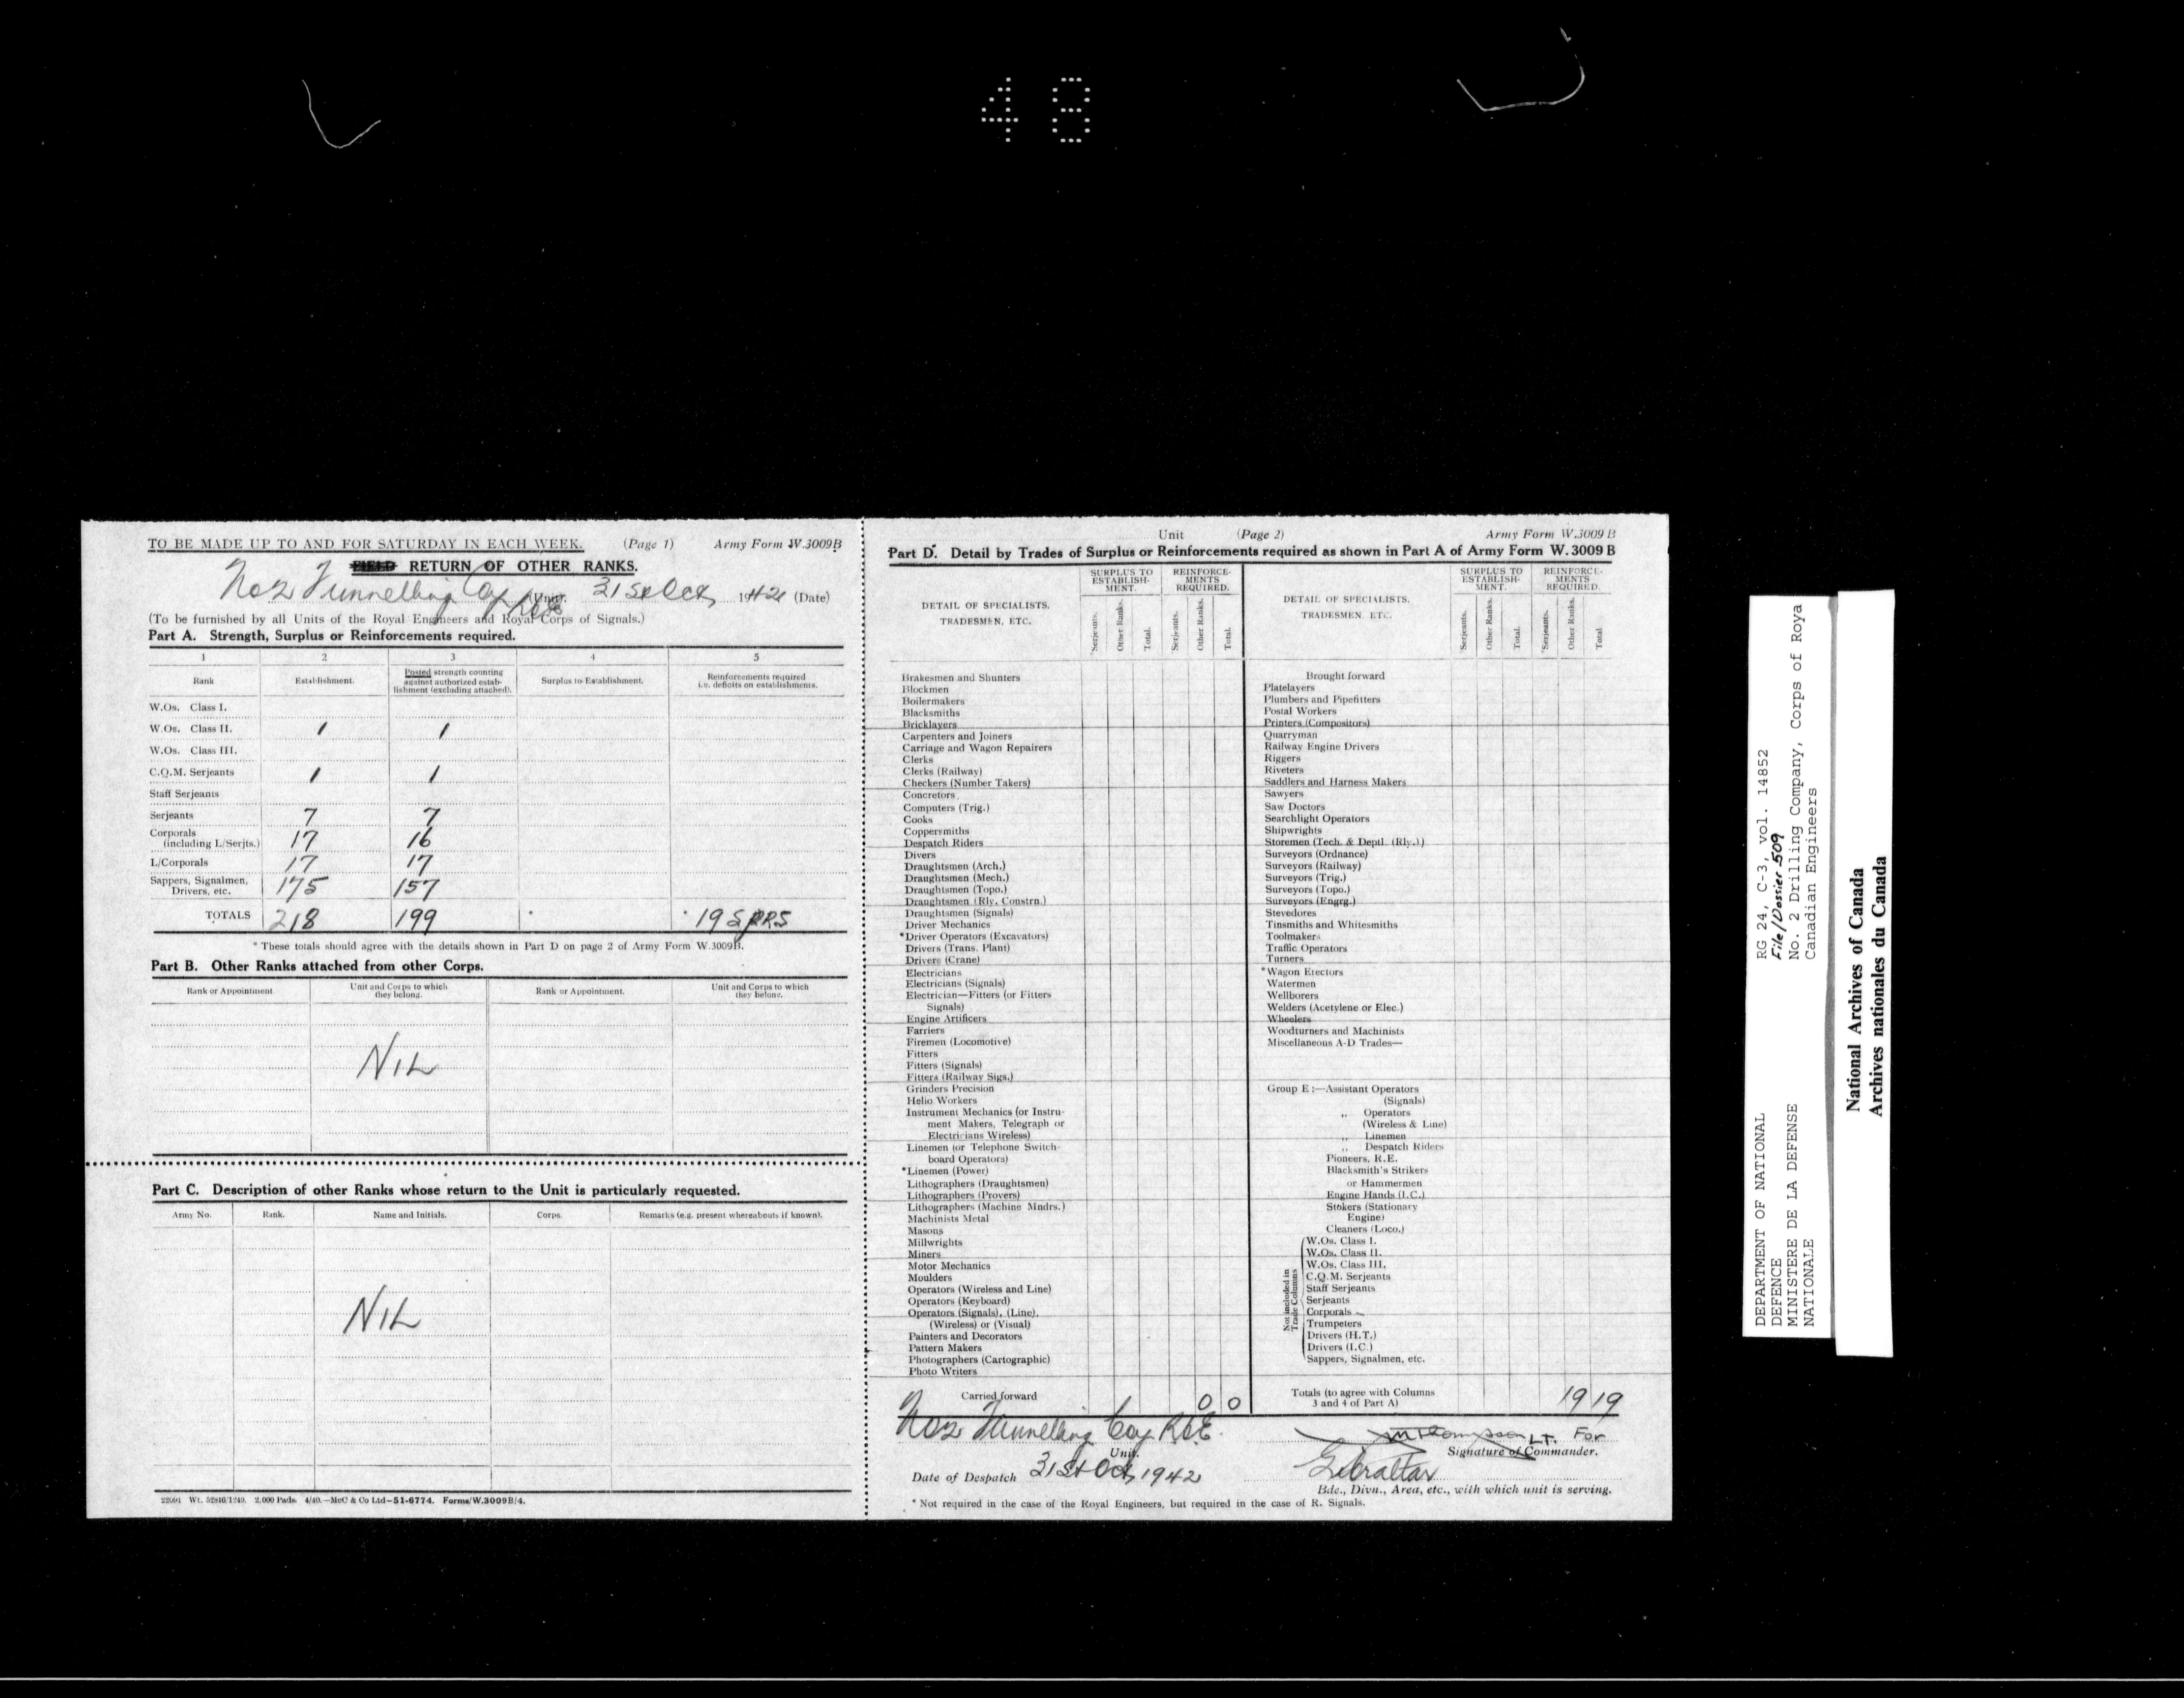 48
TO BE MADE UP TO AND FOR SATURDAY IN EACH WEEK. (Page 1) Army Form W.3009B
FIELD RETURN OF OTHER RANKS.
No 2 Tunnelling Coy RCE (Unit. 31st Oct, 1942 (Date)
(To be furnished by all Units of the Royal Engineers and Royal Corps of Signals.)
Part A. Strength, Surplus or Reinforcements required.
1 2 3 4 5
Rank Establishment. Posted strength counting against authorized establishment (excluding attached). Surplus to Establishment. Reinforcements required i.e. deficits on establishments.
W.Os. Class I.
W.Os. Class II. 1 1
W.Os. Class III.
C.Q.M. Serjeants 1 1
Staff Serjeants
Serjeants 7 7
Corporals (including L/Serjts.) 17 16
L/Corporals 17 17
Sappers, Signalmen, Drivers, etc. 175 157
TOTALS 218 199 * * 19 SPRS
* These totals should agree with the details shown in Part D on page 2 of Army Form W.3009B.
Part B. Other Ranks attached from other Corps.
Rank or Appointment Unit and Corps to which they belong. Rank or Appointment. Unit and Corps to which they belong.
NIL
Part C. Description of other Ranks whose return to the Unit is particularly requested.
Army No. Rank. Name and Initials. Corps. Remarks (e.g. present whereabouts if known).
NIL
22091 Wt. 52846/1249. 2,000 Pads. 4/40.—McC & Co Ltd—51-6774. Forms/W.3009B/4.
Unit (Page 2) Army Form W.3009 B
Part D. Detail by Trades of Surplus or Reinforcements required as shown in Part A of Army Form W. 3009 B
DETAIL OF SPECIALISTS, TRADESMEN, ETC.
SURPLUS TO ESTABLISHMENT.
REINFORCEMENTS REQUIRED.
Serjeants. Other Ranks. Total. Serjeants. Other Ranks. Total.
Brakesmen and Shunters
Blockmen
Boilermakers
Blacksmiths
Bricklayers
Carpenters and Joiners
Carriage and Wagon Repairers
Clerks
Clerks (Railway)
Checkers (Number Takers)
Concretors
Computers (Trig.)
Cooks
Coppersmiths
Despatch Riders
Divers
Draughtsmen (Arch.)
Draughtsmen (Mech.)
Draughtsmen (Topo.)
Draughtsmen (Rly. Constrn.)
Draughtsmen (Signals)
Driver Mechanics
*Driver Operators (Excavators)
Drivers (Trans. Plant)
Drivers (Crane)
Electricians
Electricians (Signals)
Electrician—Fitters (or Fitters
Signals)
Engine Artificers
Farriers
Firemen (Locomotive)
Fitters
Fitters (Signals)
Fitters (Railway Sigs.)
Grinders Precision
Helio Workers
Instrument Mechanics (or Instru-
ment Makers, Telegraph or
Electricians Wireless)
Linemen (or Telephone Switch-
board Operators)
*Linemen (Power)
Lithographers (Draughtsmen)
Lithographers (Provers)
Lithographers (Machine Mndrs.)
Machinists Metal
Masons
Millwrights
Miners
Motor Mechanics
Moulders
Operators (Wireless and Line)
Operators (Keyboard)
Operators (Signals), (Line),
(Wireless) or (Visual)
Painters and Decorators
Pattern Makers
Photographers (Cartographic)
Photo Writers
Carried forward 0 0
DETAIL OF SPECIALISTS, TRADESMEN, ETC.
SURPLUS TO ESTABLISHMENT.
REINFORCEMENTS REQUIRED.
Serjeants. Other Ranks. Total. Serjeants. Other Ranks. Total
Brought forward
Platelayers
Plumbers and Pipefitters
Postal Workers
Printers (Compositors)
Quarryman
Railway Engine Drivers
Riggers
Riveters
Saddlers and Harness Makers
Sawyers
Saw Doctors
Searchlight Operators
Shipwrights
Storemen (Tech. & Deptl. (Rly.))
Surveyors (Ordnance)
Surveyors (Railway)
Surveyors (Trig.)
Surveyors (Topo.)
Surveyors (Engrg.)
Stevedores
Tinsmiths and Whitesmiths
Toolmakers
Traffic Operators
Turners
*Wagon Erectors
Watermen
Wellborers
Welders (Acetylene or Elec.)
Wheelers
Woodturners and Machinists
Miscellaneous A-D Trades—
Group E :—Assistant Operators
(Signals)
,, Operators
(Wireless & Line)
,, Linemen
,, Despatch Riders
Pioneers, R.E.
Blacksmith's Strikers
or Hammermen
Engine Hands (I.C.)
Stokers (Stationary
Engine)
Cleaners (Loco.)
Not included in Trade Columns
W.Os. Class I.
W.Os. Class II.
W.Os. Class III.
C.Q.M. Serjeants
Staff Serjeants
Serjeants
Corporals
Trumpeters
Drivers (H.T.)
Drivers (I.C.)
Sappers, Signalmen, etc.
Totals (to agree with Columns 3 and 4 of Part A) 19 19
No 2 Tunnelling Coy R.C.E.
Unit.
Date of Despatch 31st Oct, 1942
Thompson LT. For
Signature of Commander.
Gibraltar
Bde., Divn., Area, etc., with which unit is serving.
* Not required in the case of the Royal Engineers, but required in the case of R. Signals.
DEPARTMENT OF NATIONAL DEFENCE
MINISTERE DE LA DEFENSE NATIONALE
RG 24, C-3, vol. 14852
File/Dossier 509
No. 2 Drilling Company, Corps of Roya
Canadian Engineers
National Archives of Canada
Archives nationales du Canada